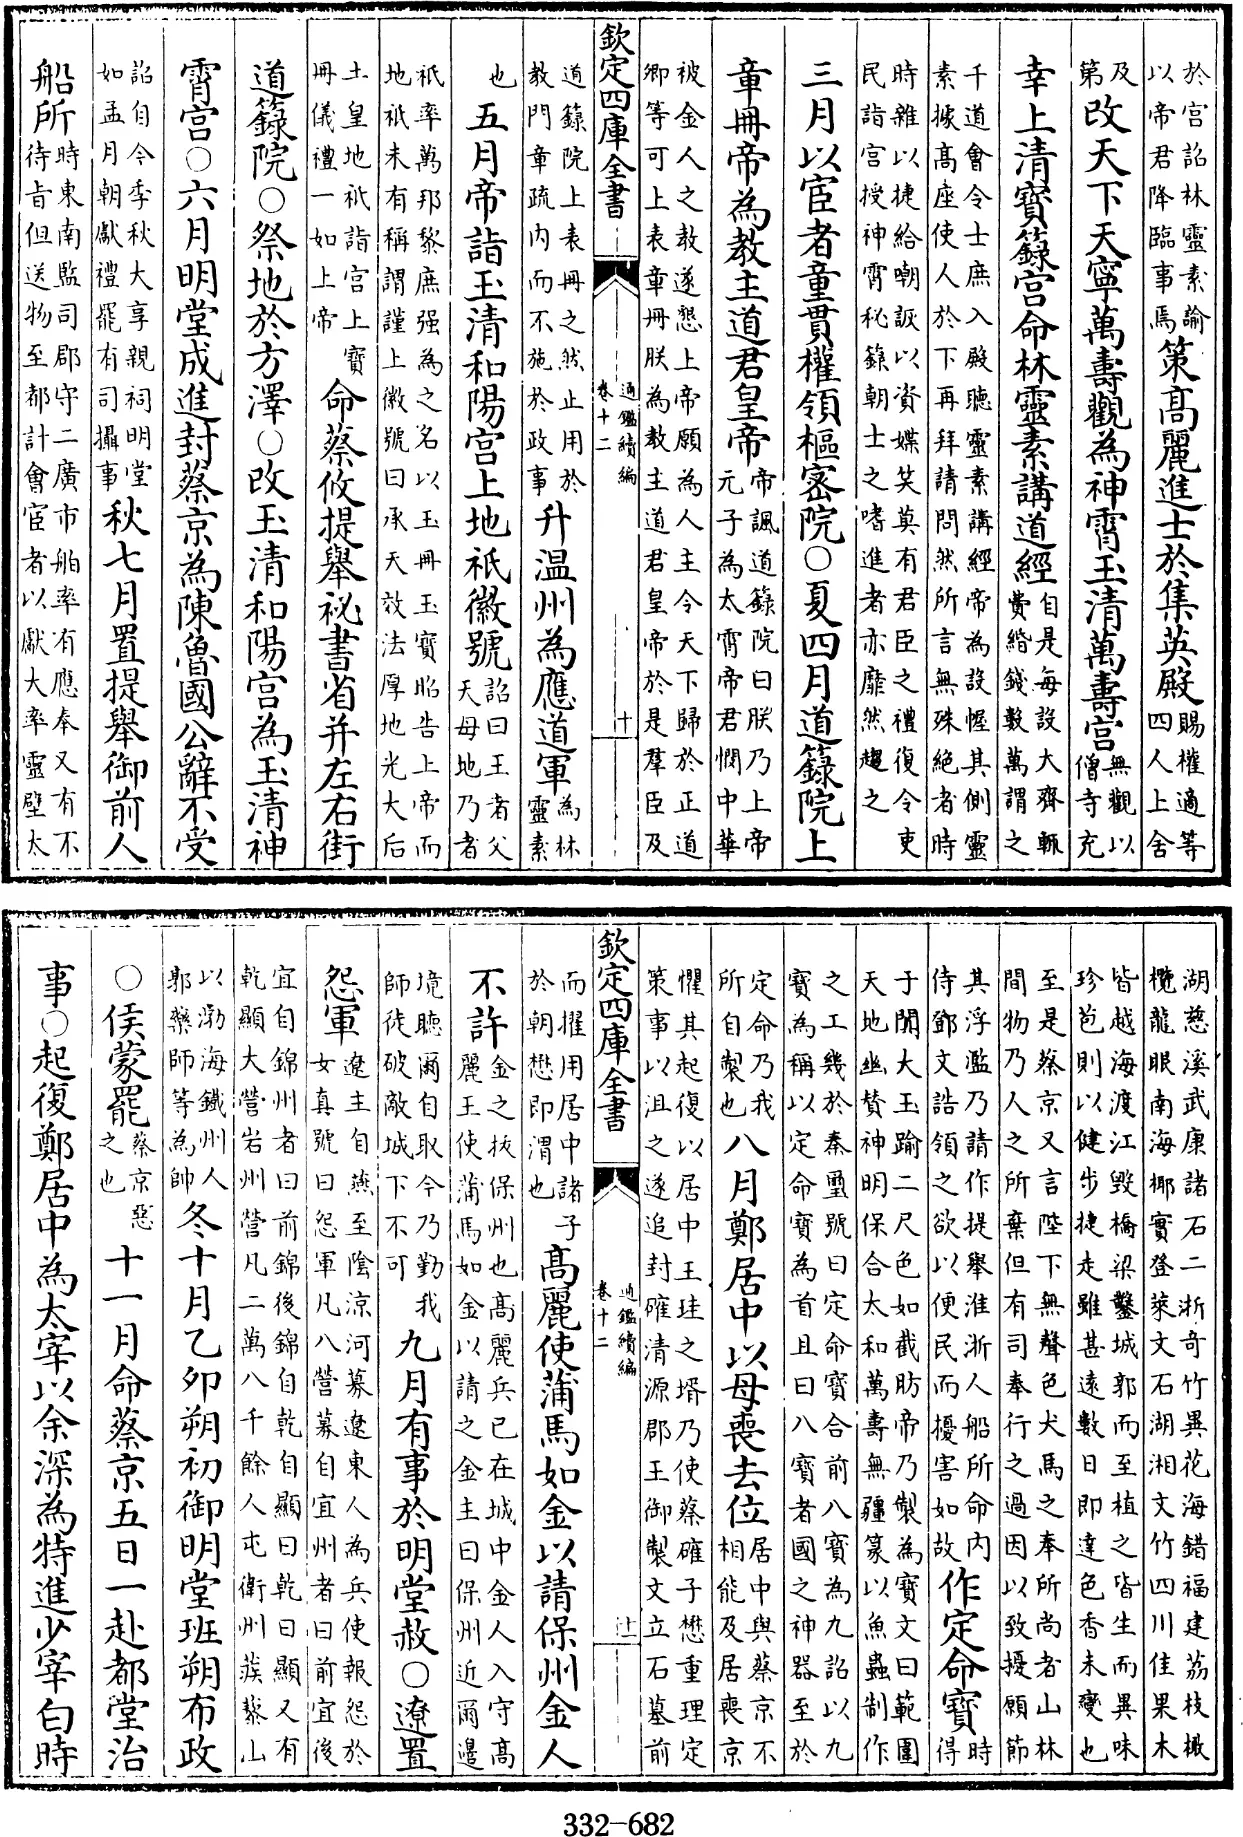 於宫詔林靈素諭以帝君降臨事焉策髙麗進士於集英殿賜權適等四人上舍
及第改天下天寧萬壽觀為神霄玉清萬壽宫無觀以僧寺充
幸上清寶籙宫命林靈素講道經自是每設大齋輒費緡錢數萬謂之
千道會令士庶入殿聽靈素講經帝為設幄其側靈素據髙座使人於下再拜請問然所言無殊絶者時
時雜以捷給嘲詼以資媟笑莫有君臣之禮復令吏民詣宫授神霄秘籙朝士之嗜進者亦靡然趨之
三月以宦者童貫權領樞密院○夏四月道籙院上
章冊帝為教主道君皇帝帝諷道籙院曰朕乃上帝元子為太霄帝君憫中華
被金人之教遂懇上帝願為人主令天下歸於正道卿等可上表章冊朕為教主道君皇帝於是羣臣及
欽定四庫全書
通鑑續編
卷十二
十
道籙院上表冊之然止用於教門章疏内而不施於政事升温州為應道軍為林靈素
也五月帝詣玉清和陽宫上地祇徽號詔曰王者父天母地乃者
祇率萬邦黎庶强為之名以玉冊玉寶昭告上帝而地祇未有稱謂謹上徽號曰承天效法厚地光大后
土皇地祇詣宫上寶冊儀禮一如上帝命蔡攸提舉祕書省并左右街
道籙院○祭地於方澤○改玉清和陽宫為玉清神
霄宫○六月明堂成進封蔡京為陳魯國公辭不受
詔自今季秋大享親祠明堂如孟月朝獻禮罷有司攝事秋七月置提舉御前人
船所時東南監司郡守二廣市舶率有應奉又有不待旨但送物至都計會宦者以獻大率靈壁太
湖慈溪武康諸石二浙奇竹異花海錯福建荔枝橄欖龍眼南海椰實登萊文石湖湘文竹四川佳果木
皆越海渡江毀橋梁鑿城郭而至植之皆生而異味珍苞則以健步捷走雖甚遠數日即達色香未變也
至是蔡京又言陛下無聲色犬馬之奉所尚者山林間物乃人之所棄但有司奉行之過因以致擾願節
其浮濫乃請作提舉淮浙人船所命内侍鄧文誥領之欲以便民而擾害如故作定命寶時得
于闐大玉踰二尺色如截肪帝乃製為寶文曰範圍天地幽賛神明保合太和萬壽無疆篆以魚蟲制作
之工幾於秦璽號曰定命寶合前八寶為九詔以九寶為稱以定命寶為首且曰八寶者國之神器至於
定命乃我所自製也八月鄭居中以母喪去位居中與蔡京不相能及居喪京
懼其起復以居中王珪之壻乃使蔡確子懋重理定策事以沮之遂追封確清源郡王御製文立石墓前
欽定四庫全書
通鑑續編
卷十二
十一
而擢用居中諸子於朝懋即渭也髙麗使蒲馬如金以請保州金人
不許金之抜保州也髙麗兵已在城中金人入守髙麗王使蒲馬如金以請之金主曰保州近爾邉
境聽爾自取今乃勤我師徒破敵城下不可九月有事於明堂赦○遼置
怨軍遼主自燕至隂涼河募遼東人為兵使報怨於女真號曰怨軍凡八營募自宜州者曰前宜後
宜自錦州者曰前錦後錦自乾自顯曰乾曰顯又有乾顯大營岩州營凡二萬八千餘人屯衛州蒺藜山
以渤海鐵州人郭藥師等為帥冬十月乙卯朔初御明堂班朔布政
○侯蒙罷蔡京惡之也十一月命蔡京五日一赴都堂治
事○起復鄭居中為太宰以余深為特進少宰白時
332-682